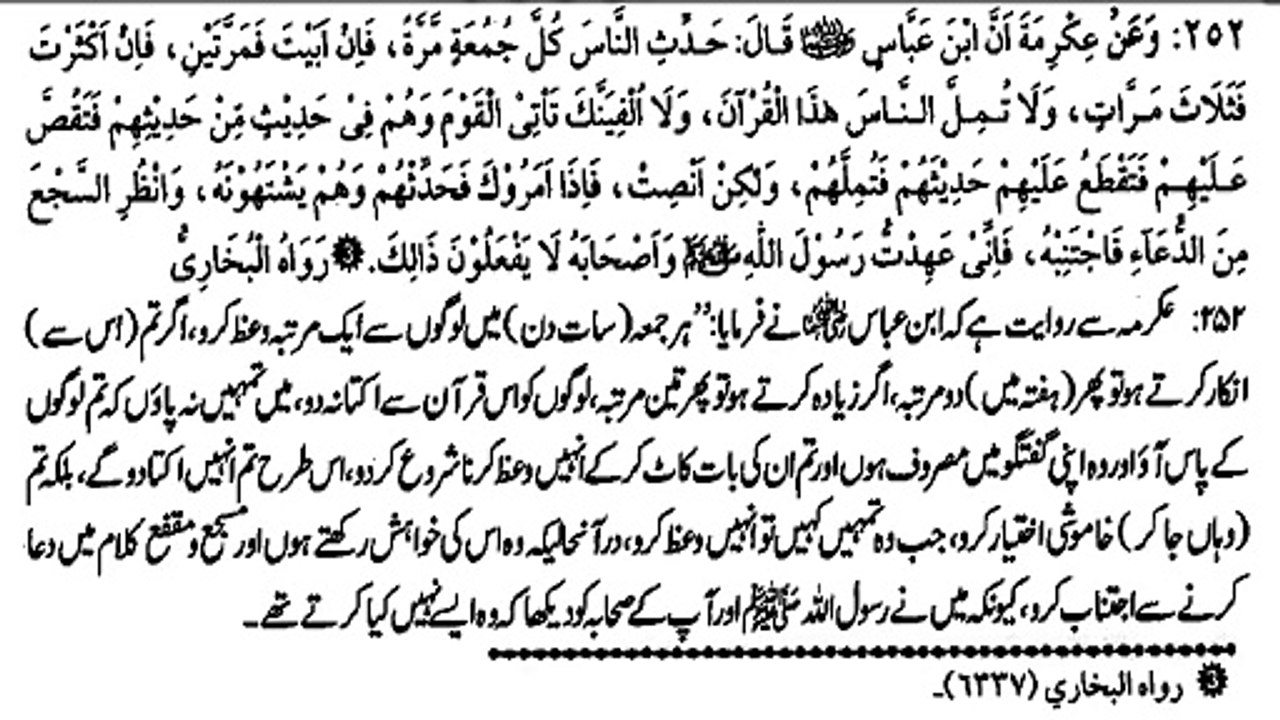 ٢٥٢: وَعَنْ عِكْرِمَةَ اَنَّ ابْنَ عَبَّاسٍ رضی اللہ عنہما قَالَ: حَدِّثِ النَّاسَ كُلَّ جُمُعَةٍ مَّرَّةً، فَاِنْ اَبَيْتَ فَمَرَّتَيْنِ، فَاِنْ اَكْثَرْتَ
فَثَلَاثَ مَرَّاتٍ، وَلَا تُمِلَّ النَّاسَ هٰذَا الْقُرْآنَ، وَلَا اُلْفِيَنَّكَ تَاْتِى الْقَوْمَ وَهُمْ فِىْ حَدِيْثٍ مِّنْ حَدِيْثِهِمْ فَتَقُصَّ
عَلَيْهِمْ فَتَقْطَعُ عَلَيْهِمْ حَدِيْثَهُمْ فَتُمِلَّهُمْ، وَلٰكِنْ اَنْصِتْ، فَاِذَا اَمَرُوْكَ فَحَدِّثْهُمْ وَهُمْ يَشْتَهُوْنَهُ، وَانْظُرِ السَّجْعَ
مِنَ الدُّعَآءِ فَاجْتَنِبْهُ، فَاِنِّىْ عَهِدْتُّ رَسُوْلَ اللّٰهِ ﷺ وَاَصْحَابَهُ لَا يَفْعَلُوْنَ ذَالِكَ. ③ رَوَاهُ الْبُخَارِىُّ
۲۵۲: عکرمہ سے روایت ہے کہ ابن عباس رضی اللہ عنہما نے فرمایا: ’’ہر جمعہ (سات دن) میں لوگوں سے ایک مرتبہ وعظ کرو، اگر تم (اس سے)
انکار کرتے ہو تو پھر (ہفتہ میں) دو مرتبہ، اگر زیادہ کرتے ہو تو پھر تین مرتبہ، لوگوں کو اس قرآن سے اکتا نہ دو، میں تمہیں نہ پاؤں کہ تم لوگوں
کے پاس آؤ اور وہ اپنی گفتگو میں مصروف ہوں اور تم ان کی بات کاٹ کر کے انہیں وعظ کرنا شروع کر دو، اس طرح تم انہیں اکتا دو گے، بلکہ تم
(وہاں جا کر) خاموشی اختیار کرو، جب وہ تمہیں کہیں تو انہیں وعظ کرو، درآنحالیکہ وہ اس کی خواہش رکھتے ہوں اور مسجع و مقفع کلام میں دعا
کرنے سے اجتناب کرو، کیونکہ میں نے رسول اللہ ﷺ اور آپ کے صحابہ کو دیکھا کہ وہ ایسے نہیں کیا کرتے تھے۔
③ رواه البخاري (٦٣٣٧)۔